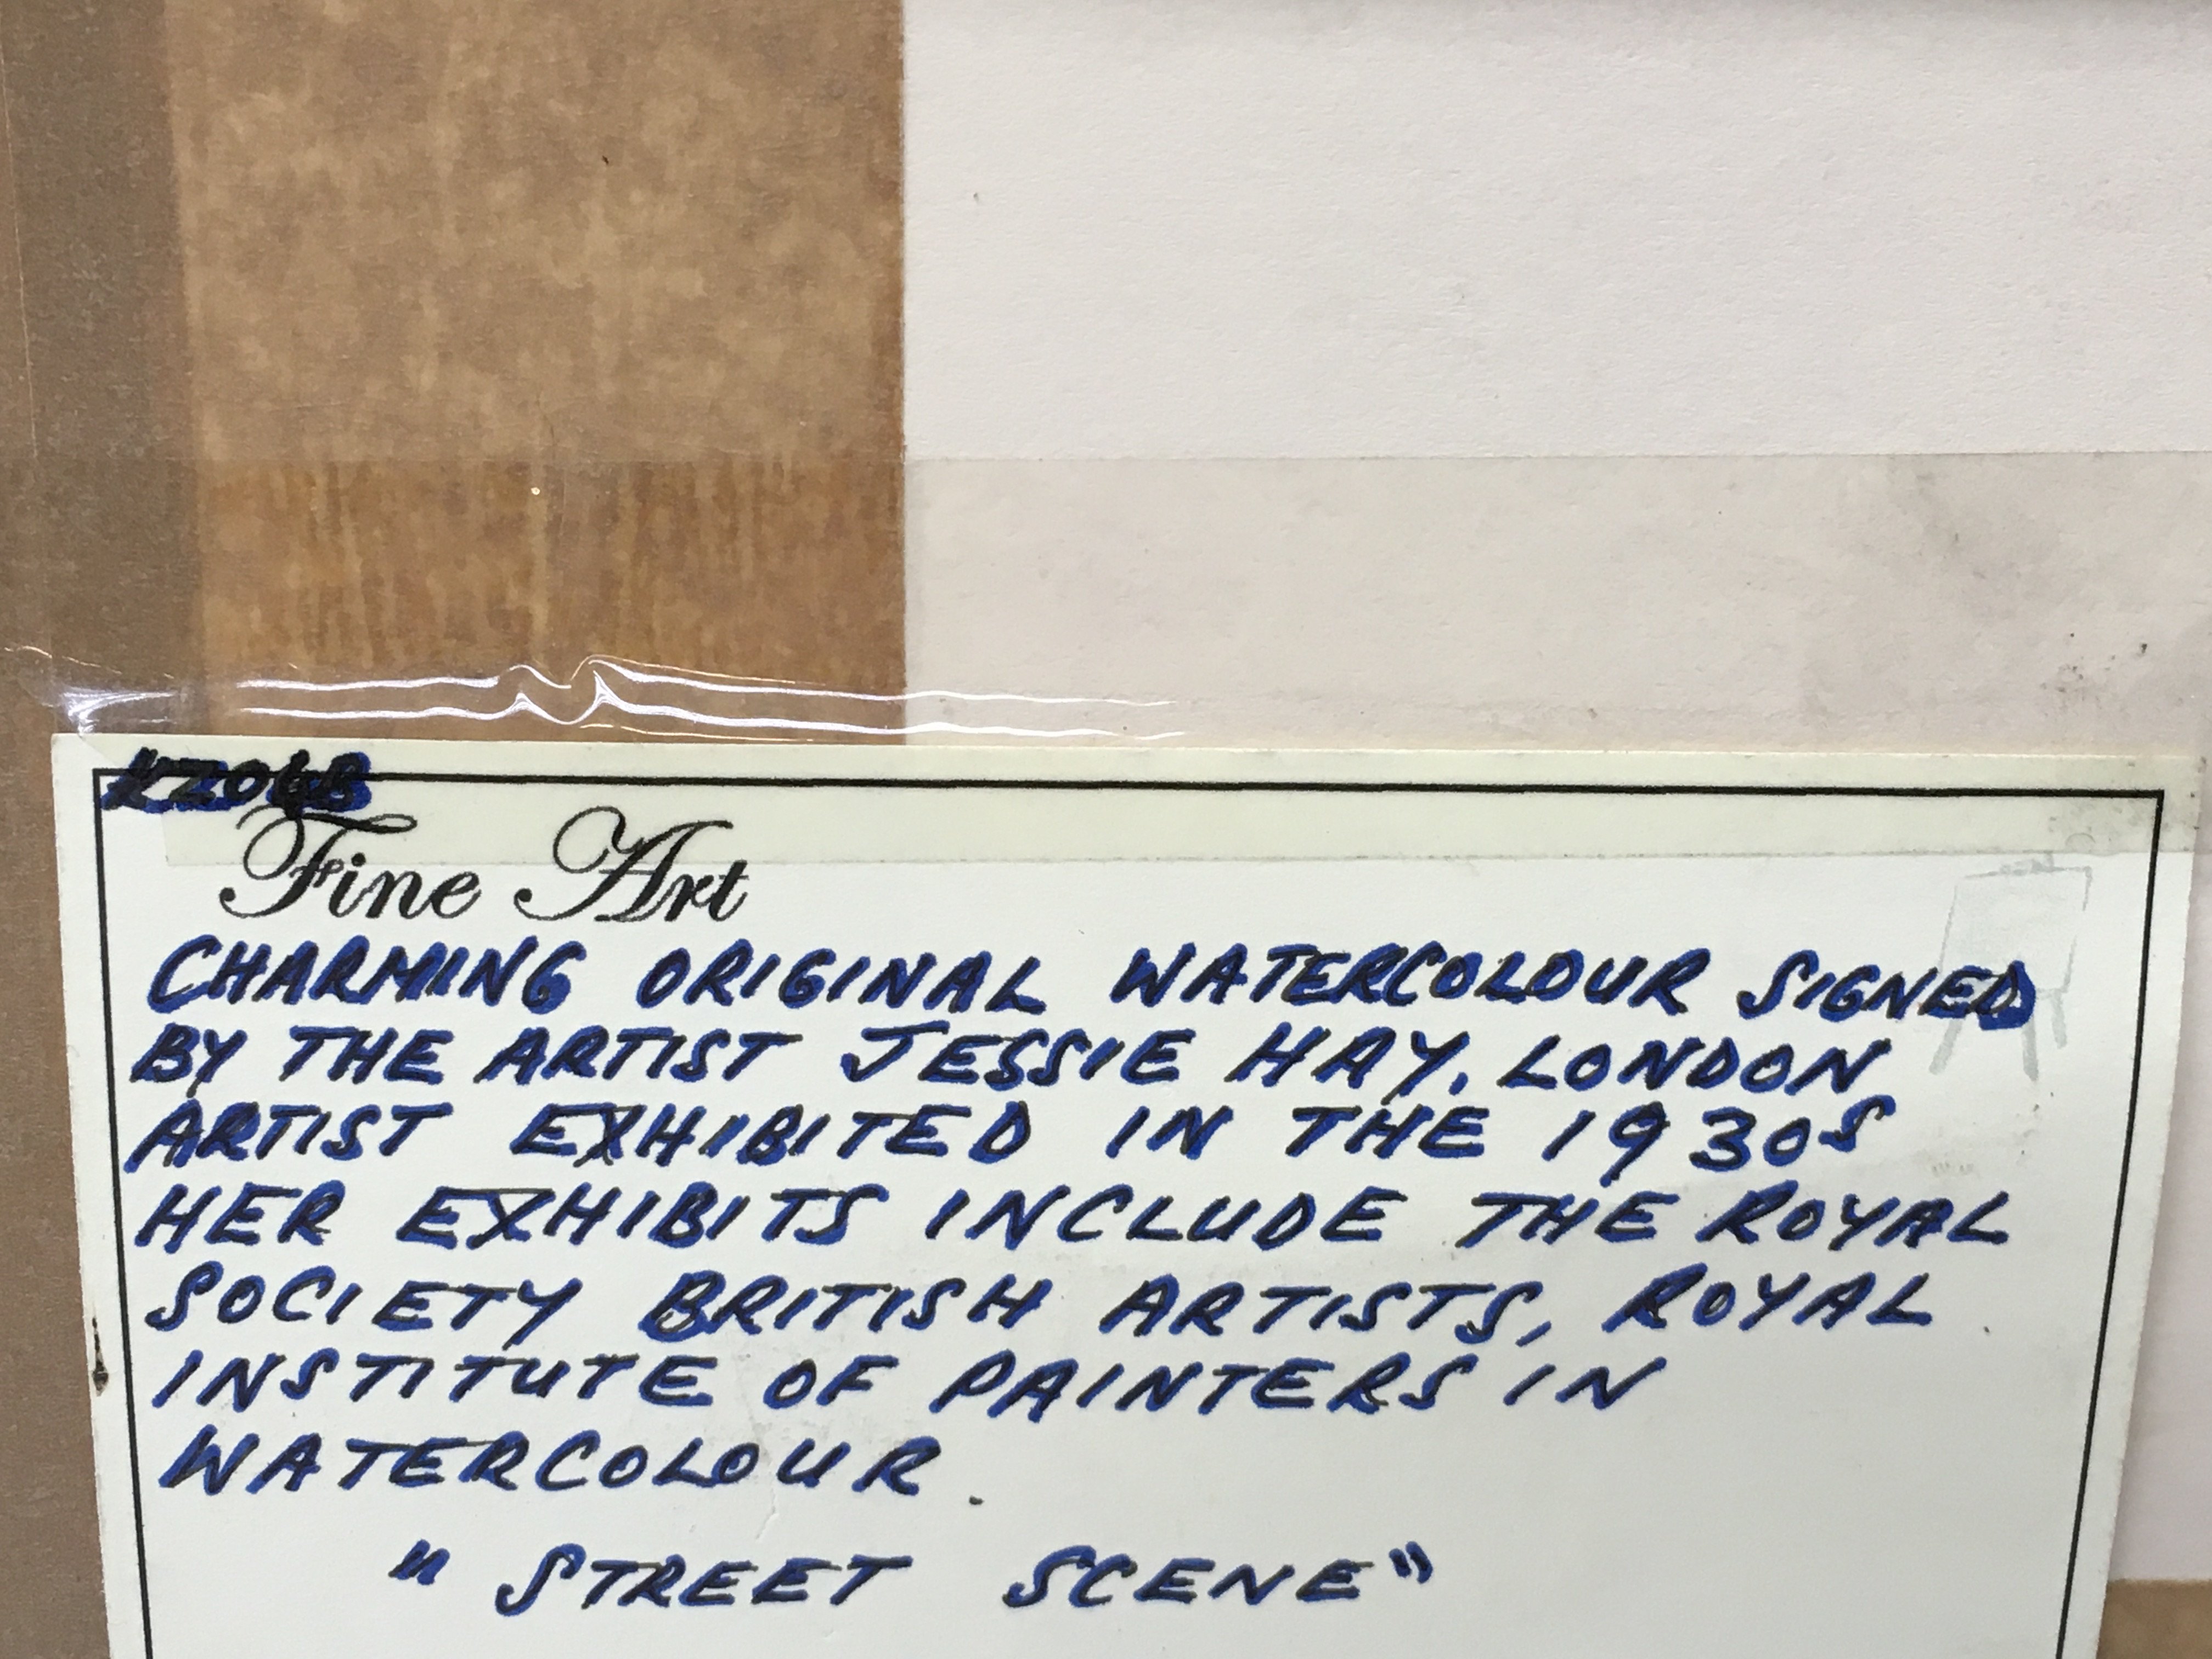 Fine Art
CHARMING ORIGINAL WATERCOLOUR SIGNED
BY THE ARTIST JESSIE HAY. LONDON
ARTIST EXHIBITED IN THE 1930S
HER EXHIBITS INCLUDE THE ROYAL
SOCIETY BRITISH ARTISTS, ROYAL
INSTITUTE OF PAINTERS IN
WATERCOLOUR.
"STREET SCENE"